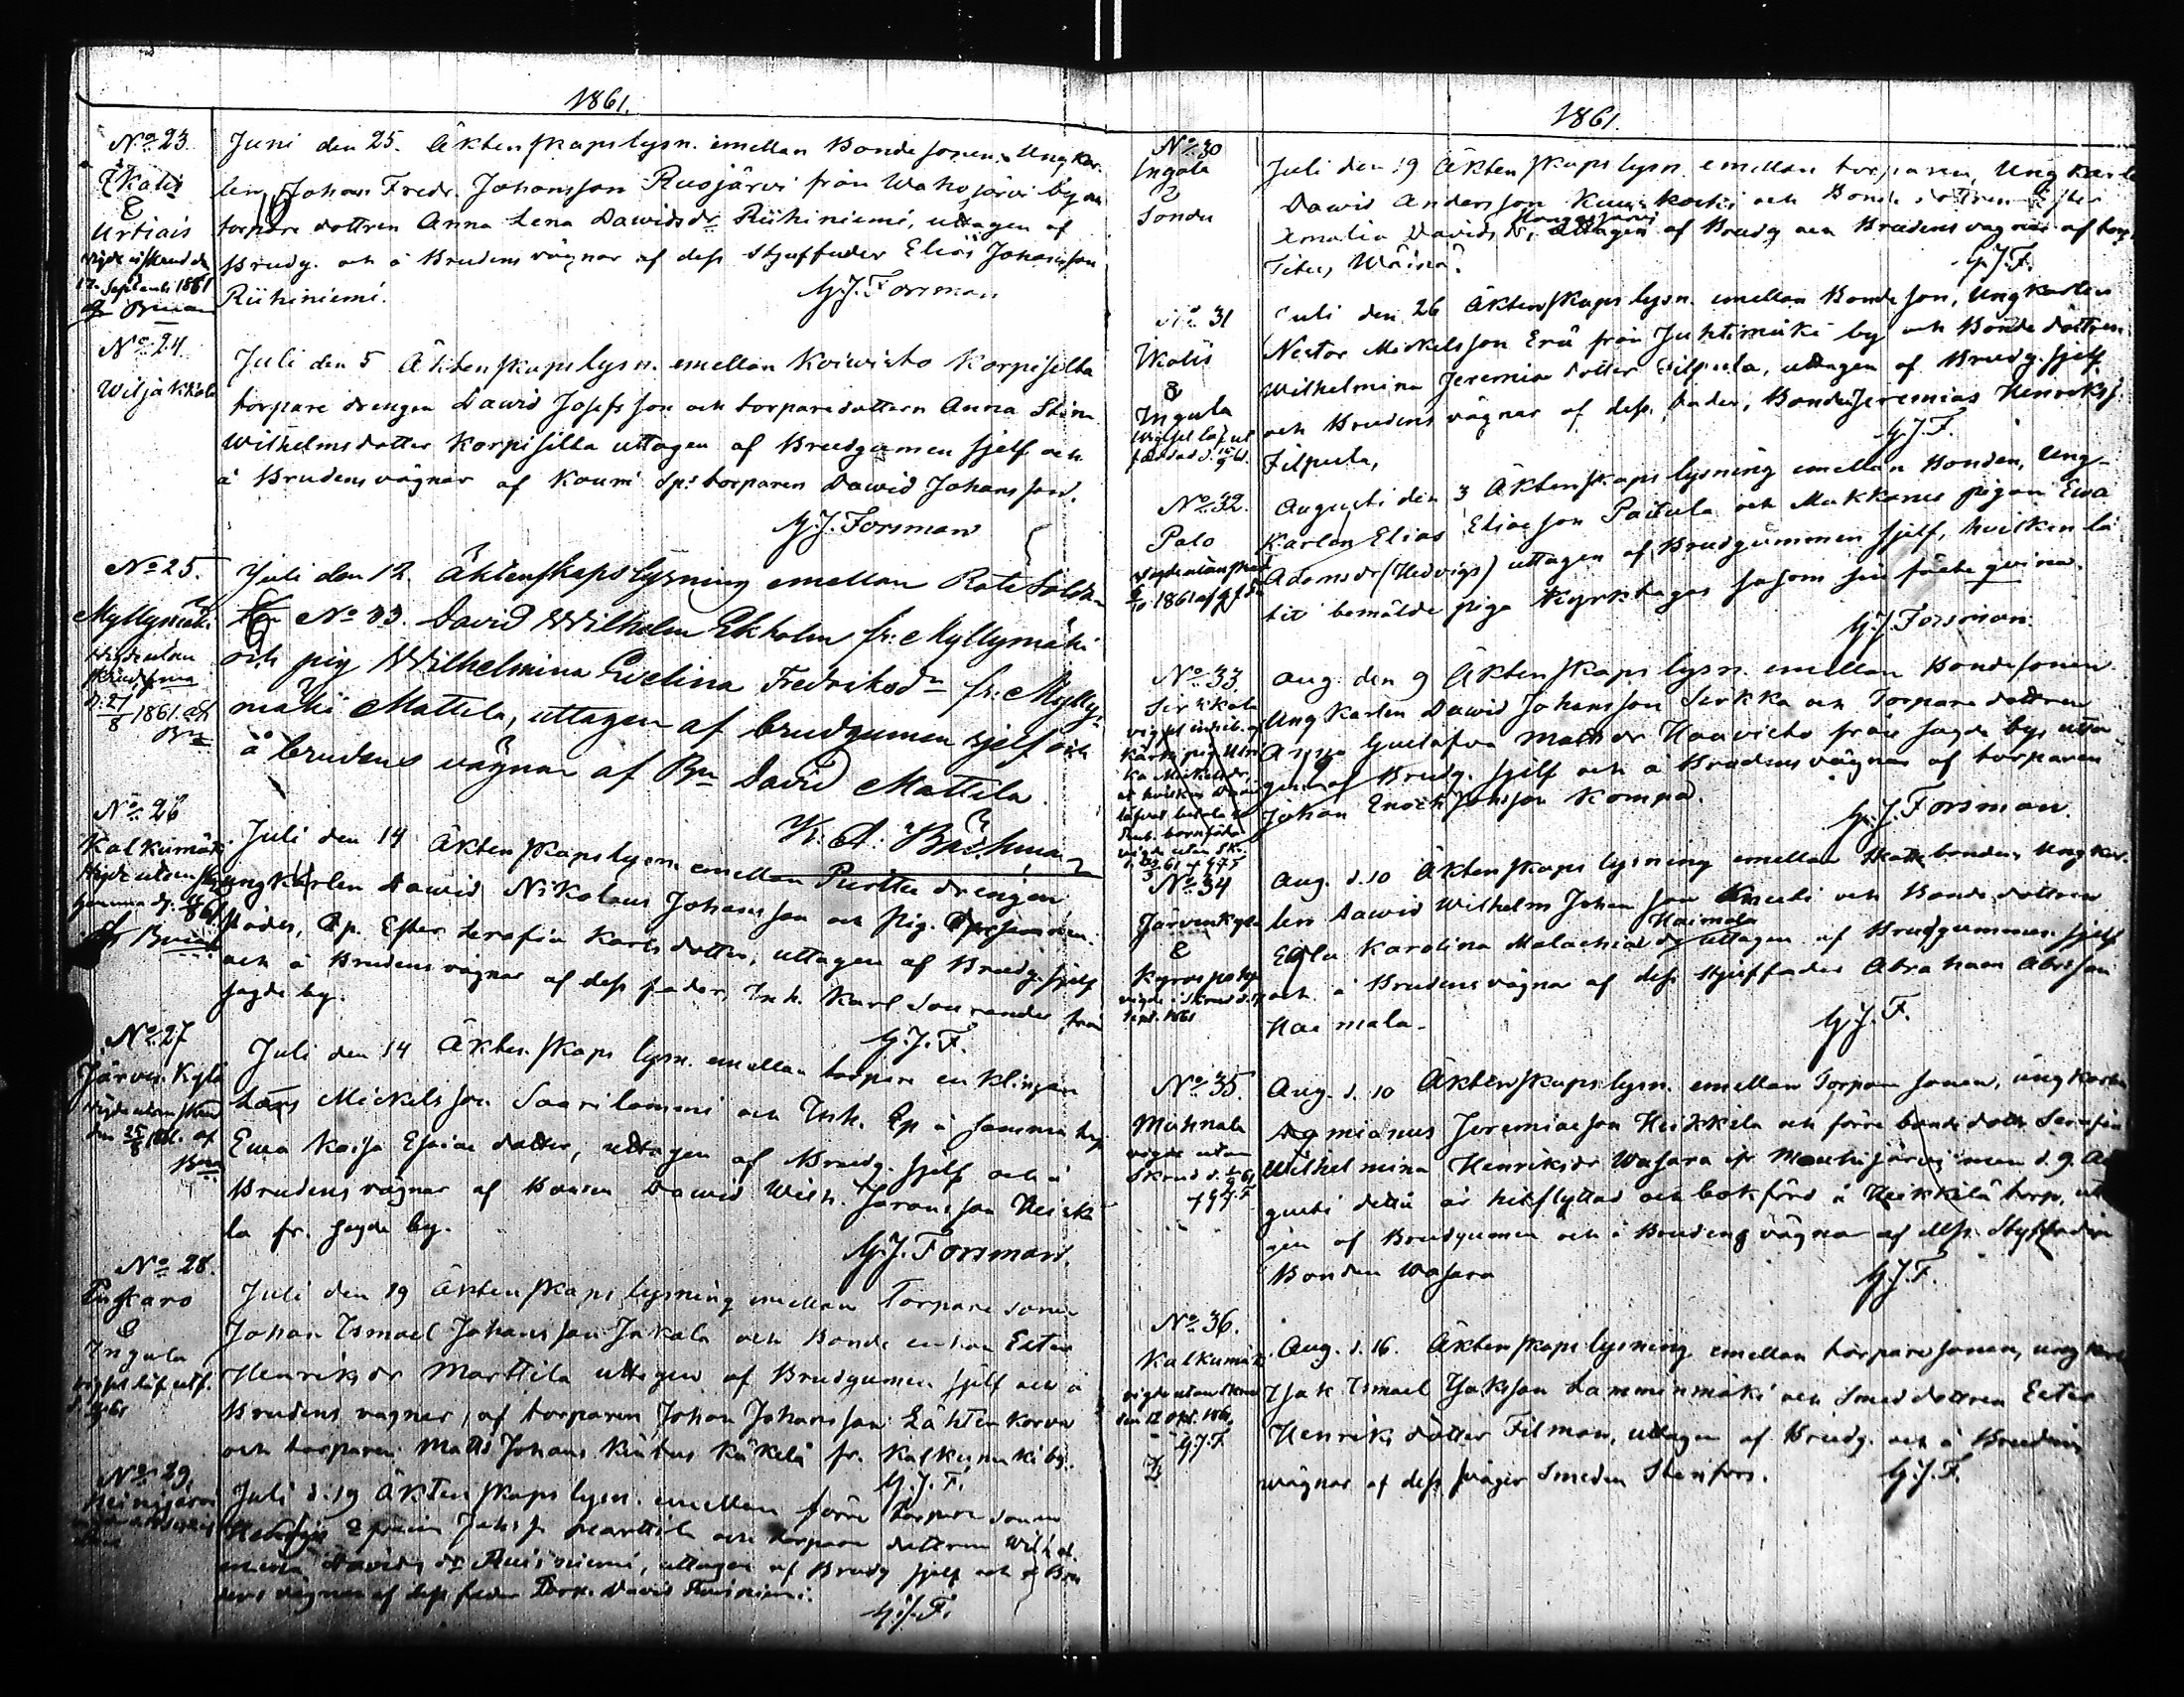 1861.
No 23.
Ikalis
&
Urtiais
vigde i skrud d.
17 September 1861
af Bmn
Juni den 25. Äktenskapslysn. emellan Bondesonen, Ungkar-
len Johan Fredr. Johansson Ruojärvi från Wahojärvi by och
torpare dottren Anna Lena Dawidsdr Riihiniemi, uttagen af
Brudg. och å Brudens vägnar af dess Styffader Elias Johansson
Riihiniemi.
G.J. Forsman
No 24.
Wiljakkala
Juli den 5 Äktenskapslysn. emellan Koivisto Korpisilta
torpare drengen Dawid Josefsson och torparedottern Anna Stina
Wilhelmsdotter Korpisilta uttagen af Brudgumen sjelf och
å Brudens vägnar af Kouni Sps torparen Dawid Johansson.
G.J. Forsman
No 25.
Myllymäki
Vigde utan
skrud
d. 27/8 1861 af
Bmn
Juli den 12. Äktenskapslysning emellan Rote Soldn
No 33. David Wilhelm Ekholm fr: Myllymäki
och pig Wilhelmina Evelina Fredriksdr fr: Mylly-
mäki Mattila, uttagen af brudgumen sjelf och
å brudens vägnar af Bn David Mattila.
K: A: Bachman
No 26
Kalkumäki
Vigde utan
Juli den 14 Äktenskapslysn. emellan Purttu drengen
ungkarlen Dawid Nikolaus Johansson och Pig.
Ester Serafia Karlsdotter, uttagen af Brudg. sjelf
och å Brudens vägnar af dess fader, Inh. Karl Sourander från
sagde by.
G.J.F.
No 27
Järven Kylä
Vigde utan skrud
den 25/8 1861. af
Bmn
Juli den 14 Äktenskaps lysn. emellan torpare enklingen
Lars Mickelsson Saarilammi och Inh. Ep å samma by
Ewa Kaisa Esaiae dotter, uttagen af Brudg. sjelf och å
Brudens vägnar af Bonden Dawid Wilh. Jaransson Heikki
la fr. sagde by.
G.J. Forsman.
No 28.
&
Ingala
Juli den 19 Äktenskaps lysning emellan Torpare sonen
Johan Ismael Johansson Jakala och Bonde enkan Ester
Henriksdr Marttila uttagen af Brudgumen sjelf och å
Brudens vägnar, af torparen Johan Johansson Lähtenkorva
och torparen Matts Johans Kuitus Käkelä fr. Kalkumäki by.
G.J.F.
No 29.
Heinijärvi
Juli d. 19 Äktenskaps lysn. emellan förre torpare sonen
Efraim Johs. Marttila och torpare dottren Wilhel-
mina Davids dr Ruisniemi, uttagen af Brudg sjelf och å Bru
dens vägnar af dess fader Torp. David Ruisniemi.
G.J.F.
1861.
No 30
Ingala
&
Sondu
Juli den 19 Äktenskaps lysn. emellan torparen, Ungkarlen
Dawid Andersson Kuuskoski och Bonde dottren Ester
Amalia Davids dr, uttagen af Brudg och Brudens vägnar af torp.
G.J.F.
No 31
Ikalis
&
Ingala
Juli den 26 Äktenskaps lysn. emellan Bonde son, Ungkarlen
Nestor Mickelsson Erä från Juhtimäki by och Bonde dottren
Wilhelmina Jeremiae dotter Filpula, uttagen af Brudg. sjelf
och Brudens vägnar af dess fader, Bonden Jeremias Henrikss.
Filpula,
G.J.F.
No 32.
Palo
Vigde utan skrud
1861 af G.J.F.
Augusti den 3 Äktenskaps lysning emellan Bonden, Ung-
Karlen Elias Eliaeson Paitula och Makkonens pigan Ewa
Adamsdr (Hedvigs) uttagen af Brudgummen sjelf, hvilken lå
tit bemälde piga Kyrktagas såsom sin fäste qvinna.
G.J. Forsman.
No 33.
Sirkkala
Aug: den 9 Äktenskaps lysn. emellan Bondesonen
Ungkarlen Dawid Johansson Sirkka och Torpare dottren
Anna Gustafva Matsdr Haavisto från sagda by, utta
gen af Brudg. sjelf och å Brudens vägnar af torparen
Johan Enoch Jonsson Kompa.
G.J. Forsman.
No 34
Järvenkylä
&
Kyrospohja
vigde i Skrud d. 17
Sept. 1861
Aug. d. 10 Äktenskaps lysning emellan Skattebonden, Ungkar-
len Dawid Wilhelm Johansson Knuuti och Bonde dottren
Haimala
Edla Karolina Malachiae dr uttagen af Brudgummen sjelf
och å Brudens vägnar af dess Styffader Abraham Abrsson
Haimala.
G.J.F.
No 35.
Miihnala
vigde utan
Skrud d.
af G.J.F.
Aug. d. 10 Äktenskaps lysn. emellan Torpare sonen, ungkarlen
Damianus Jeremiaeson Heikkilä och förre bonde dottr Serafia
Wilhelmina Henriksdr Wasara ifr Mouhijärvi men d. 9 Au
gusti detta år hitflyttad och bokförd å Heikkilä torp, utta
gen af Brudgumen och å Brudens vägnar af dess Styffader
Bonden Wasara
G.J.F.
No 36.
Kalkumäki
vigde utan skrud
den 12 Okt. 1861
G.J.F.
Aug. d. 16. Äktenskaps lysning emellan torparesonen, ungkarl
Isak Ismael Isaksson Lamminmäki och Smeddottren Ester
Henriks dotter Filman, uttagen af Brudg. och å Brudens
vägnar af dess svåger Smeden Stenfors.
G.J.F.